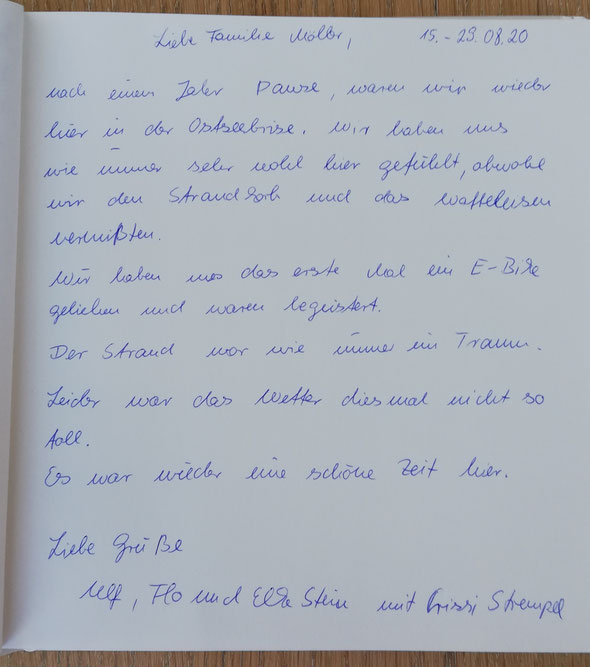 Liebe Familie Möller, 15. - 29.08.20
nach einem Jahr Pause, waren wir wieder
hier in der Ostseebrise. Wir haben uns
wie immer sehr wohl hier gefühlt, obwohl
wir den Strandkorb und das Waffeleisen
vermißten.
Wir haben uns das erste Mal ein E-Bike
geliehen und waren begeistert.
Der Strand war wie immer ein Traum.
Leider war das Wetter diesmal nicht so
toll.
Es war wieder eine schöne Zeit hier.
Liebe Grüße
Ulf, Flo und Elke Stein mit Krissi Strempel